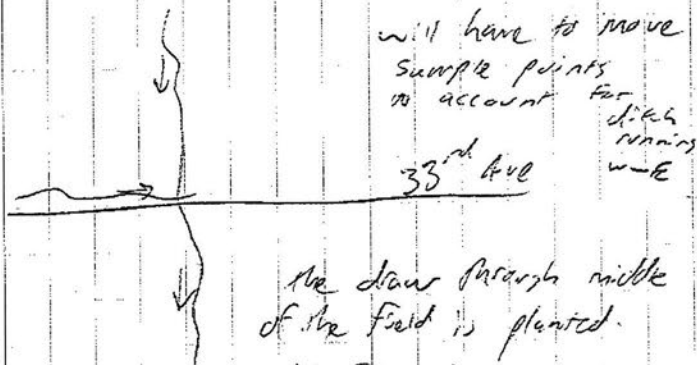 will have to move
sample points
to account for
ditch
running
W-E
33rd Ave
the draw through middle
of the field is planted.